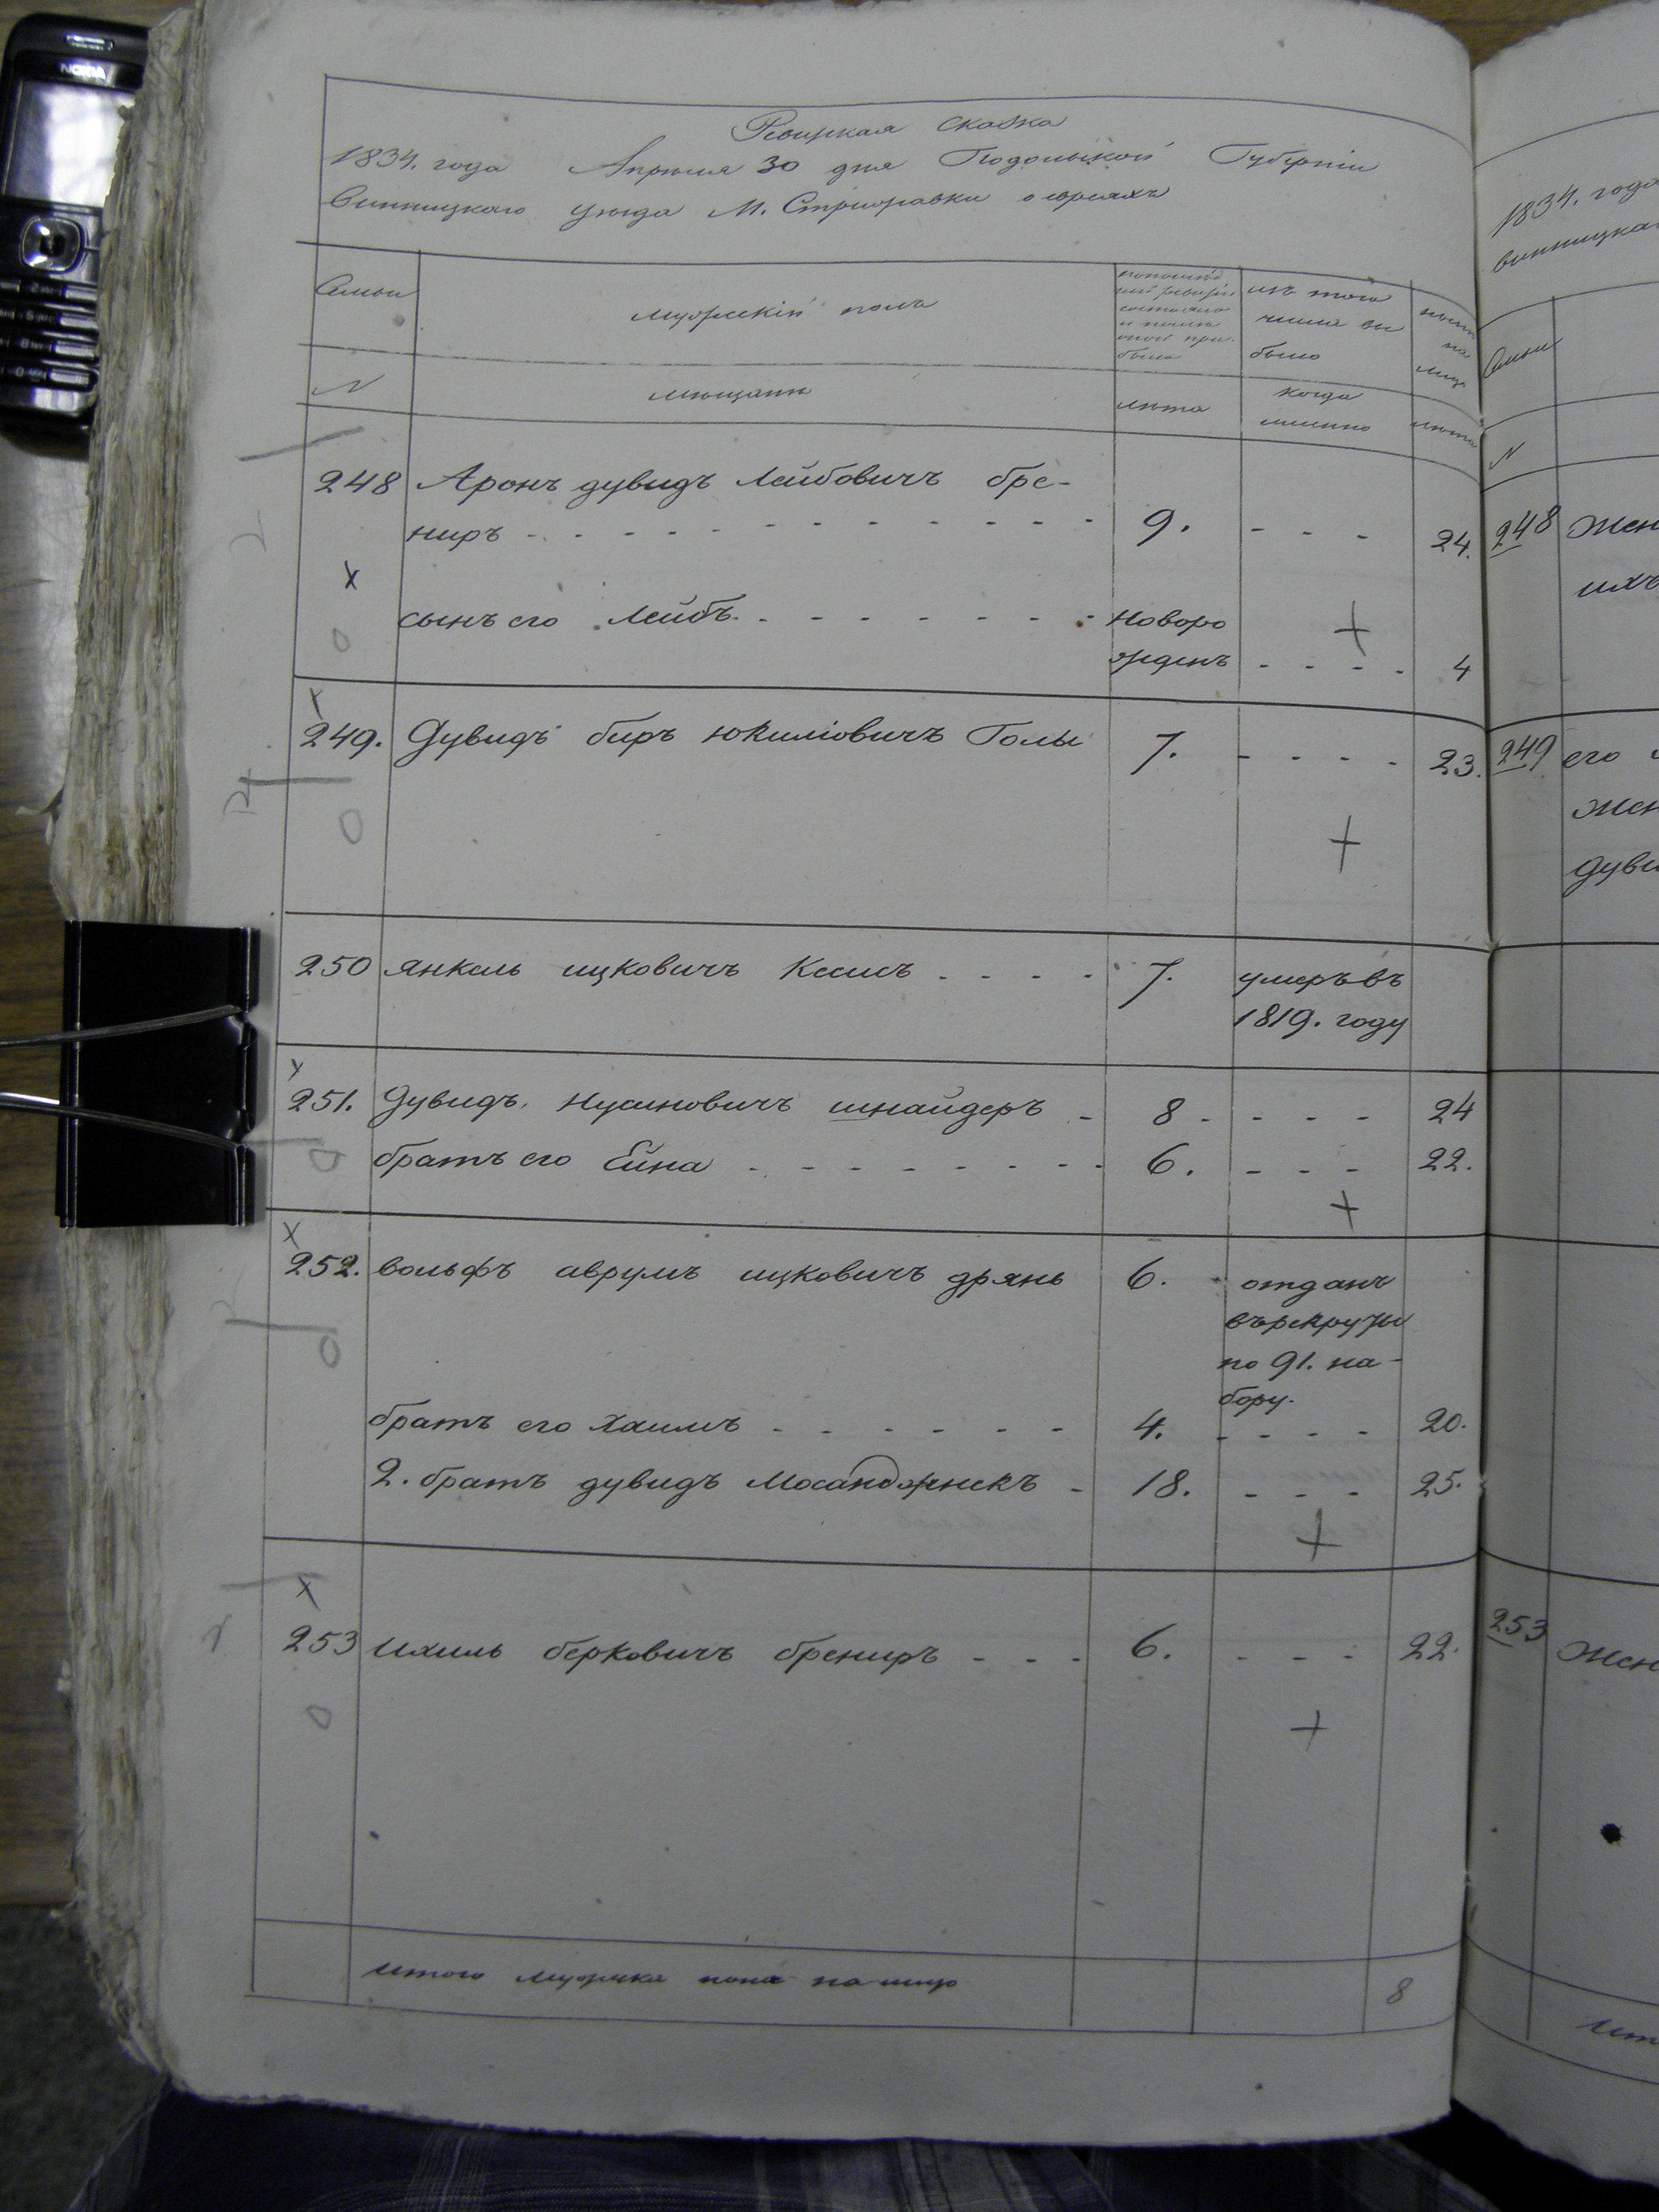 NOKIA
Ревизская Сказка
1834. года Апреля 30 дня Подольской Губерніи
Винницкаго уезда М. Стрижавки о евреяхъ
1834. года
винницка
Семьи
мужескій полъ
изъ того
числа вы
было
Семьи
N
мещане
лета
когда
имянно
лета
N
248 Аронъ дувидъ Лейбовичъ бре-
ниръ - - - 9. - - - 24.
248 Жен
ихъ
сынъ его Лейбъ - - - Новоро
жденъ - - - - 4
249. Дувидъ беръ Юкиліовичъ Голы 7. - - - - 23.
249 его
жен
дуви
250 Янкель ицковичъ Кесисъ - - - - 7. умеръ въ
1819. году
251. Дувидъ Нусиновичъ шнайдеръ - 8 - - - - 24
братъ его Ейна - - - 6. - - - 22.
252. вольфъ аврумъ ицковичъ дрянь 6. отданъ
въ рекруты
по 91. на-
бору.
братъ его Хаимъ - - - - - - 4. - - - - 20.
2. братъ дувидъ - 18. - - - 25.
253 Ихиль берковичъ брениръ - - - 6. - - - 22.
253 Жен
итого мужеска пола на лицо 8
Ито